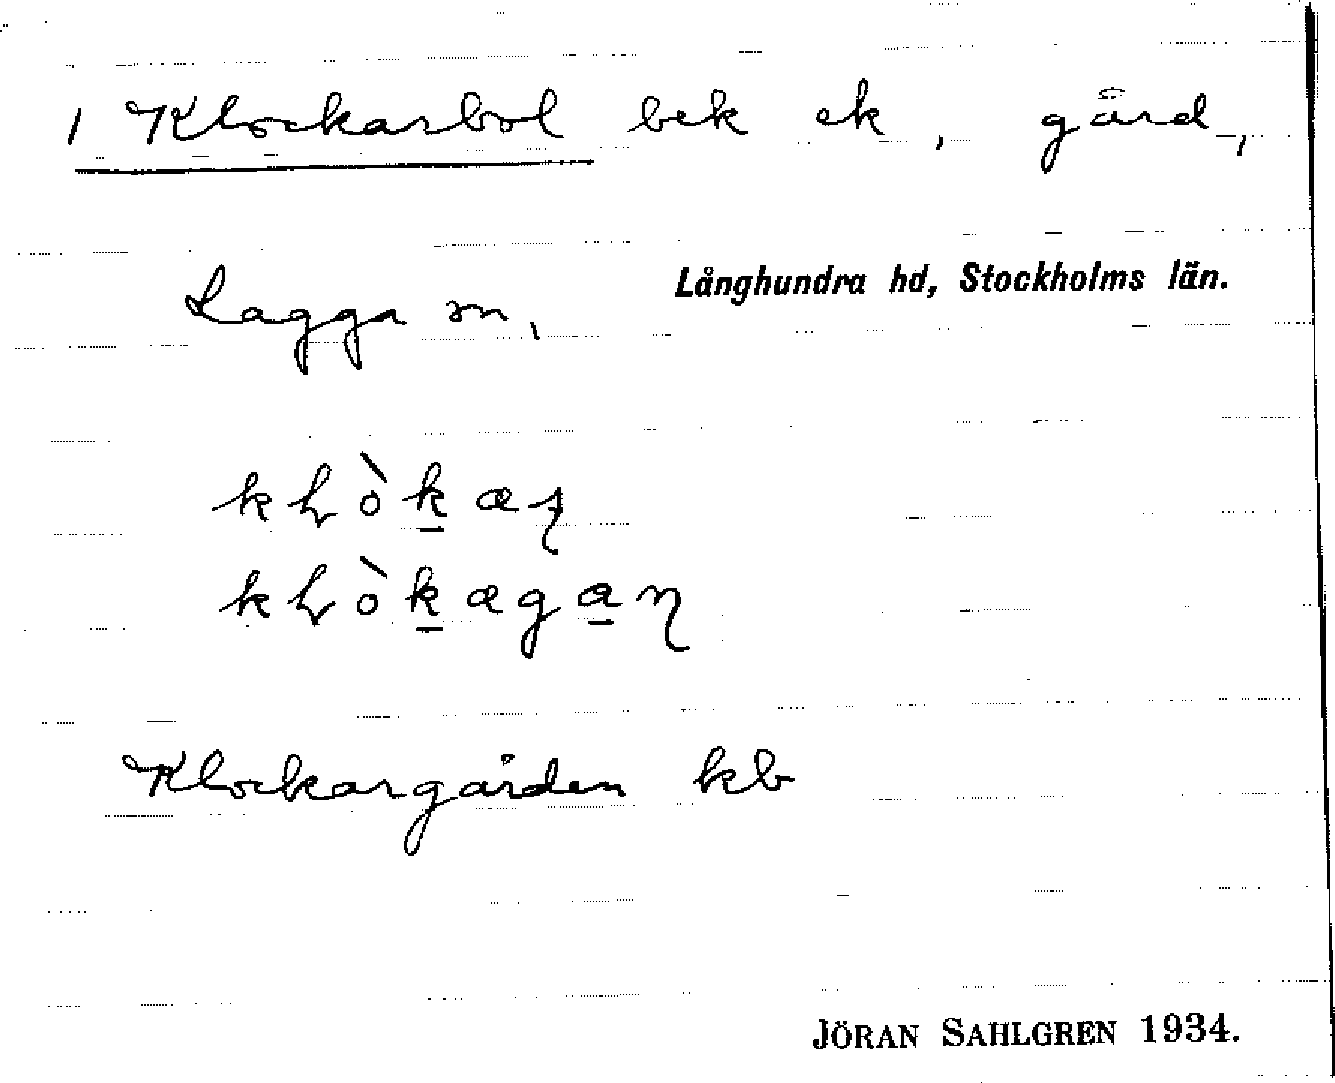 1 Klockarbol bek ek, gård,
Långhundra hd, Stockholms län.
Lagga sn,
Klockargården kb
JÖRAN SAHLGREN 1934.